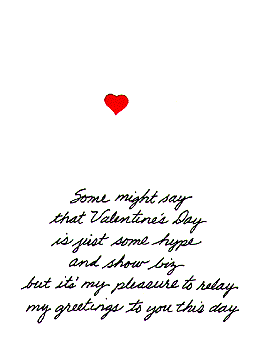 Some might say
that Valentine's Day
is just some hype
and show biz
but its' my pleasure to relay
my greetings to you this day